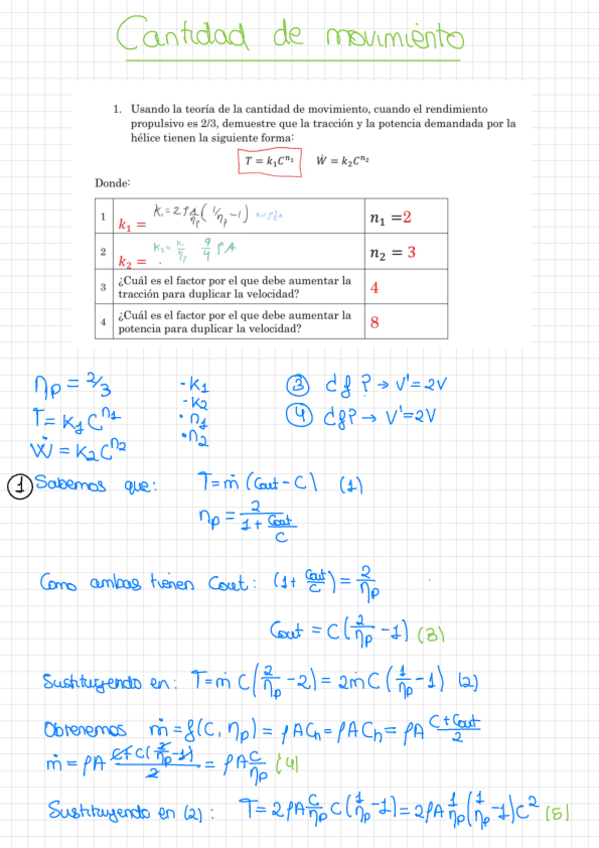 Cantidad de movimiento
1. Usando la teoría de la cantidad de movimiento, cuando el rendimiento
propulsivo es 2/3, demuestre que la tracción y la potencia demandada por la
hélice tienen la siguiente forma:
T = k₁Cⁿ¹ Ẇ = k₂Cⁿ²
Donde:
1 k₁ = K₁=2ρA/ηp(1/ηp-1) n₁ =2
2 k₂ = K₂= K₁/ηp 9/4 ρA n₂ = 3
3 ¿Cuál es el factor por el que debe aumentar la
tracción para duplicar la velocidad? 4
4 ¿Cuál es el factor por el que debe aumentar la
potencia para duplicar la velocidad? 8
ηp = 2/3 - K1 ③ df? → V'=2V
T = K₁Cⁿ¹ - K2 ④ df? → V'=2V
Ẇ = K₂Cⁿ² • n1
• n2
① Sabemos que: T=ṁ (Cout-C) (1)
ηp = 2/(1+Cout/C)
Como ambas tienen Cout: (1+Cout/C) = 2/ηp
Cout = C(2/ηp -1) (3)
Sustituyendo en: T=ṁ C(2/ηp -2) = 2ṁC(1/ηp -1) (2)
Obtenemos ṁ=f(C, ηp) = ρACh = ρACh = ρA (C+Cout)/2
ṁ = ρA (C+C(2/ηp-1))/2 = ρA C/ηp (4)
Sustituyendo en (2): T=2ρA C/ηp C(1/ηp-1) = 2ρA 1/ηp (1/ηp -1)C² (5)